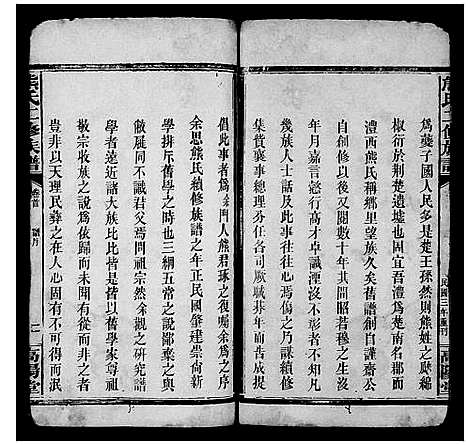 為藥子國人民多是楚王孫然則熊姓之縣綿
椒衍於荆楚遺墟也固宜吾澧為湘南名郡而
澧西熊氏稱鄉里望族久矣舊譜創自謹齋公
自創修以後又閱數十年其間昭若穆也生卒
年月嘉言懿行高才卓識湮沒不彰者不知
幾族人士話及此事往往心焉傷之乃謀續修
集貲襄事得諸司厥職毋
倡此事者為余門人熊君琢之復囑余為之序
余思熊氏續修族譜之年正民國肇建崇尚新
學排斥舊學之時也三綱五常之說鄙棄之與
敝屣同不識君父焉問祖宗然余觀之研究譜
學者遠近諸大族比比皆是皆以舊學家尊祖
敬宗收族之說為依歸而未聞有從而非之者
豈非以天理民彝之在人心固有不可得而泯
熊氏三修族譜
卷首
高陽堂
民國三年重刊
高陽堂